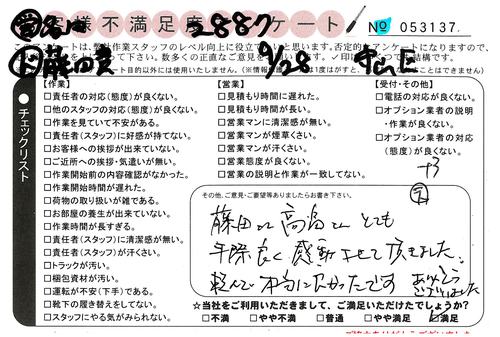 客様不満足度 ケート
2887
No 053137
9/28
【作業】
□責任者の対応(態度)が良くない。
□他のスタッフの対応(態度)が良くない。
□作業を見ていて不安がある。
□責任者(スタッフ)に好感が持てない。
□お客様への挨拶が出来ていない。
□ご近所への挨拶・気遣いが無い。
□作業開始前の内容確認がなかった。
□作業開始時間が遅れた。
□荷物の取り扱いが雑である。
□お部屋の養生が出来ていない。
□作業時間が長すぎる。
□責任者(スタッフ)に清潔感が無い。
□責任者(スタッフ)が汗くさい。
□トラックが汚い。
□梱包資材が汚い。
□運転が不安(下手)である。
□靴下の履き替えをしてない。
□スタッフにやる気がみられない。
【営業】
□見積もり時間に遅れた。
□見積もり時間が長い。
□営業マンに清潔感が無い。
□営業マンが煙草くさい。
□営業マンが汗くさい。
□営業態度が良くない。
□営業の説明と作業が一致してない。
【受付・その他】
□電話の対応が良くない。
□オプション業者の説明
・作業が良くない。
□オプション業者の対応
(態度)が良くない。
●チェックリスト
その他、ご意見・ご要望等ありましたらお書き下さい。
藤田さん 高島さん とても
手際良く感動させて頂きました。
頼んで本当に良かったです ありがとう
ございました
☆当社をご利用いただきまして、ご満足いただけたでしょうか?
□不満 □やや不満 □普通 □やや満足 □満足